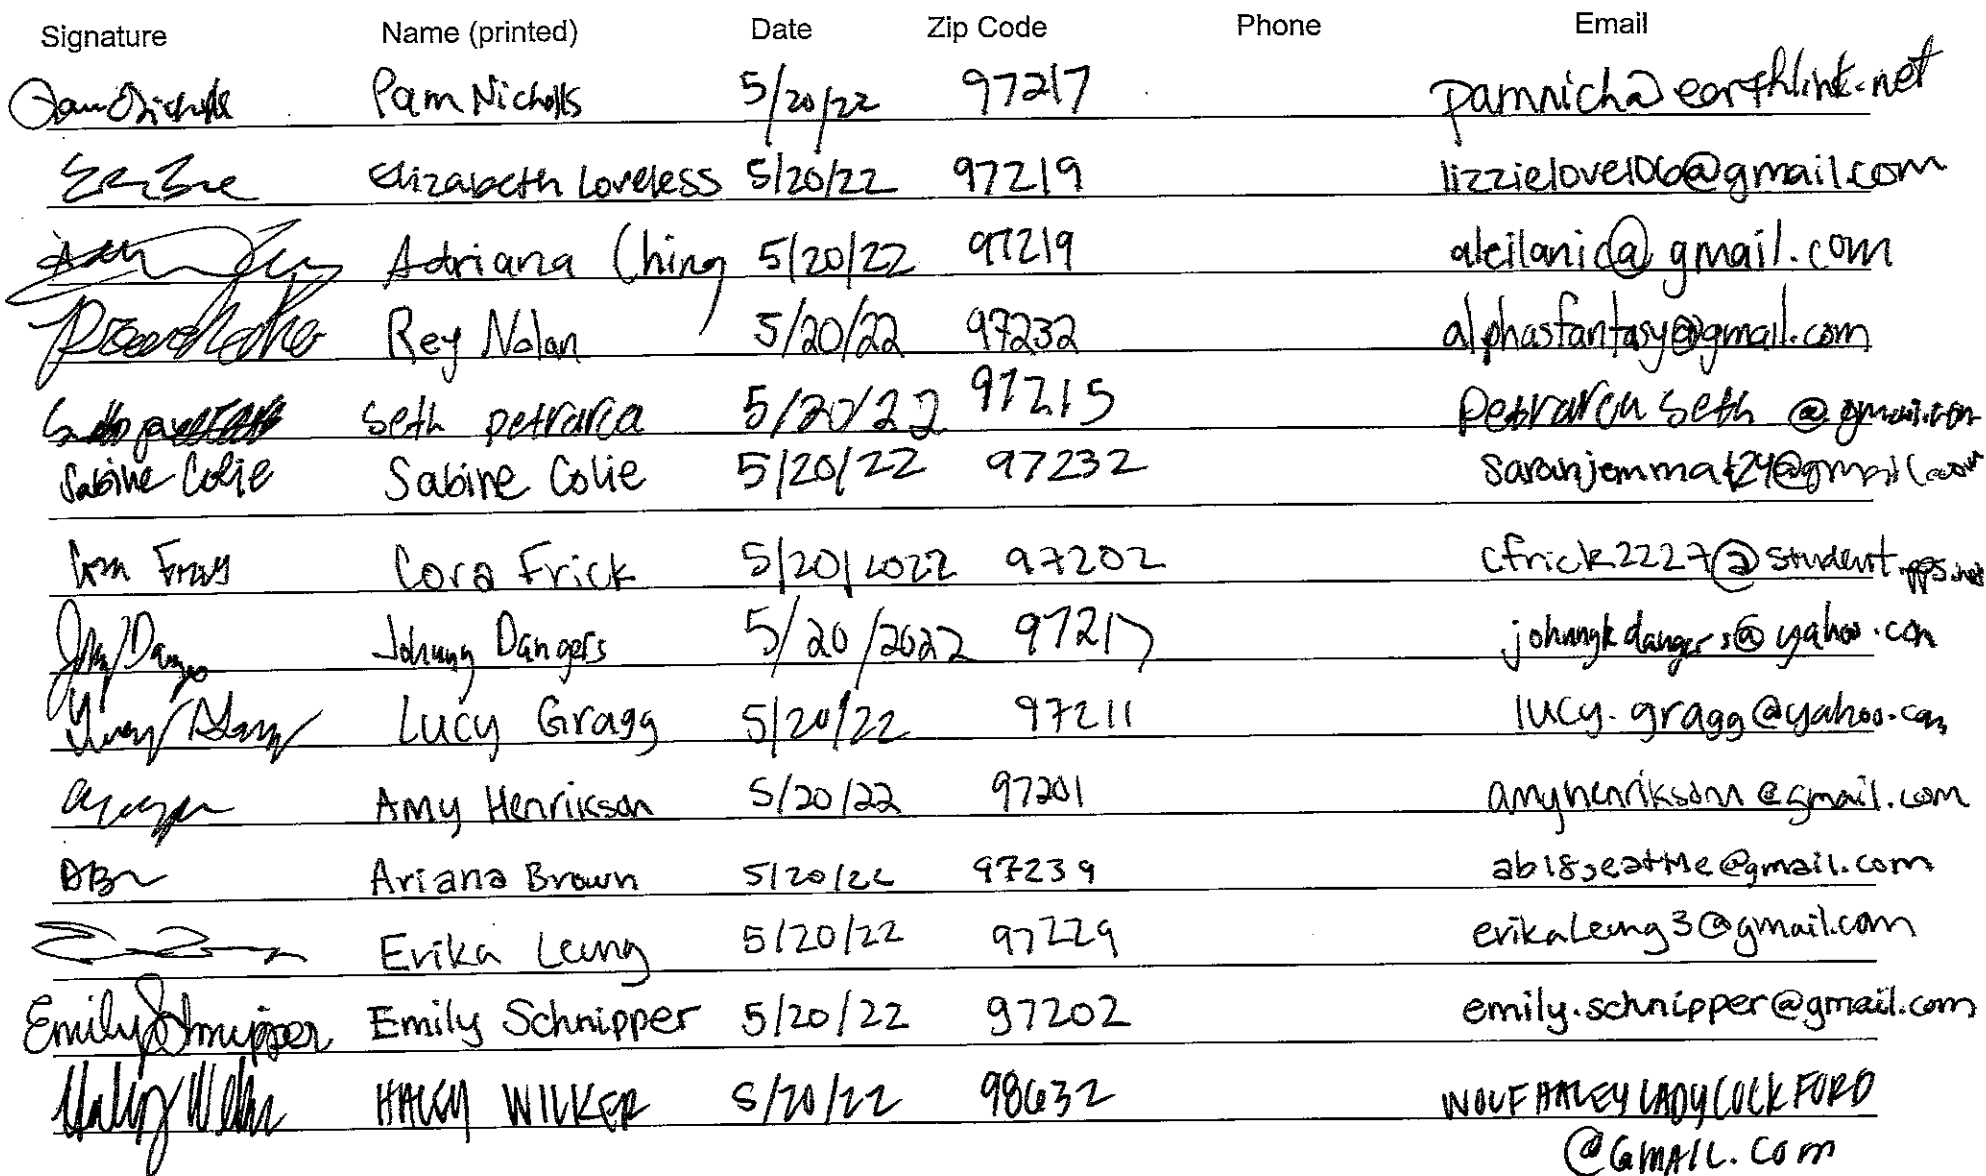 Signature Name (printed) Date Zip Code Phone Email
Pam Nicholls 5/20/22 97217 pamnich@earthlink.net
Elizabeth Loveless 5/20/22 97219 lizzielove106@gmail.com
Adriana Ching 5/20/22 97219 aleilanic@gmail.com
Rey Nolan 5/20/22 97232 alphasfantasy@gmail.com
Seth petrarca 5/20/22 97215 Petrarca Seth @gmail.com
Sabine Colie Sabine Colie 5/20/22 97232
Cora Frick 5/20/2022 97202 cfrick2227@student.pps.net
Johnny Dangers 5/20/2022 97217 johnnykdangers@yahoo.com
Lucy Gragg 5/20/22 97211 lucy.gragg@yahoo.com
Amy Henrikson 5/20/22 97201 amyhenrikson@gmail.com
Ariana Brown 5/20/22 97239 ab18seattle@gmail.com
Erika Leung 5/20/22 97229 erikaleung3@gmail.com
Emily Schnipper Emily Schnipper 5/20/22 97202 emily.schnipper@gmail.com
HALEY WILKER 5/20/22 98632 WOLFHALEYLADYCOCKFORD
@GMAIL.COM